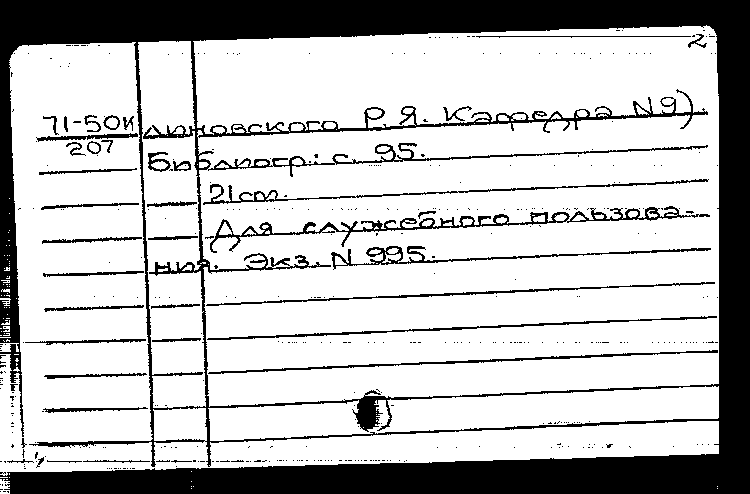 2
71-50к линовского Р.Я. Кафедра N9).
207 Библиогр.: с. 95.
21см.
Для служебного пользова-
ния. Экз. N 995.